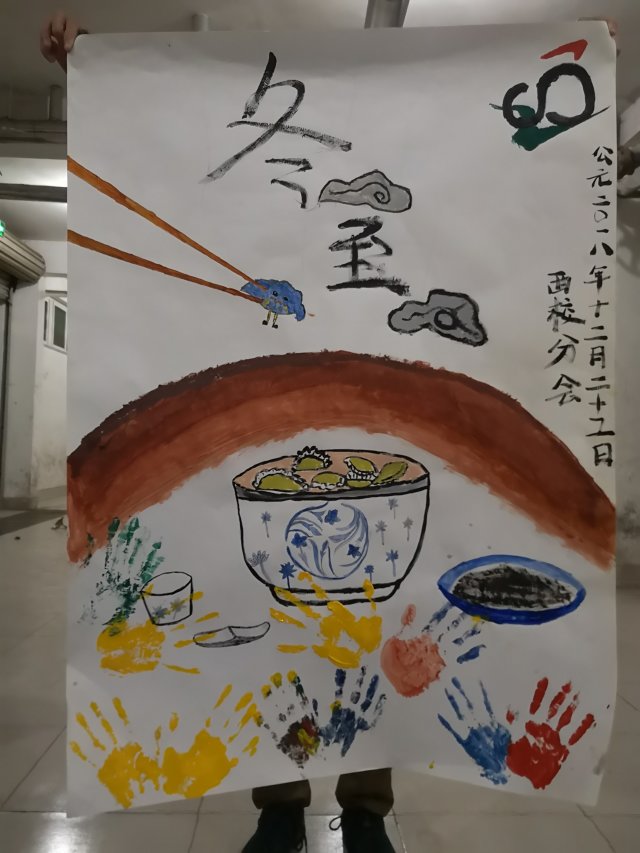 冬至
公元二〇一八年十二月二十二日
西校分会